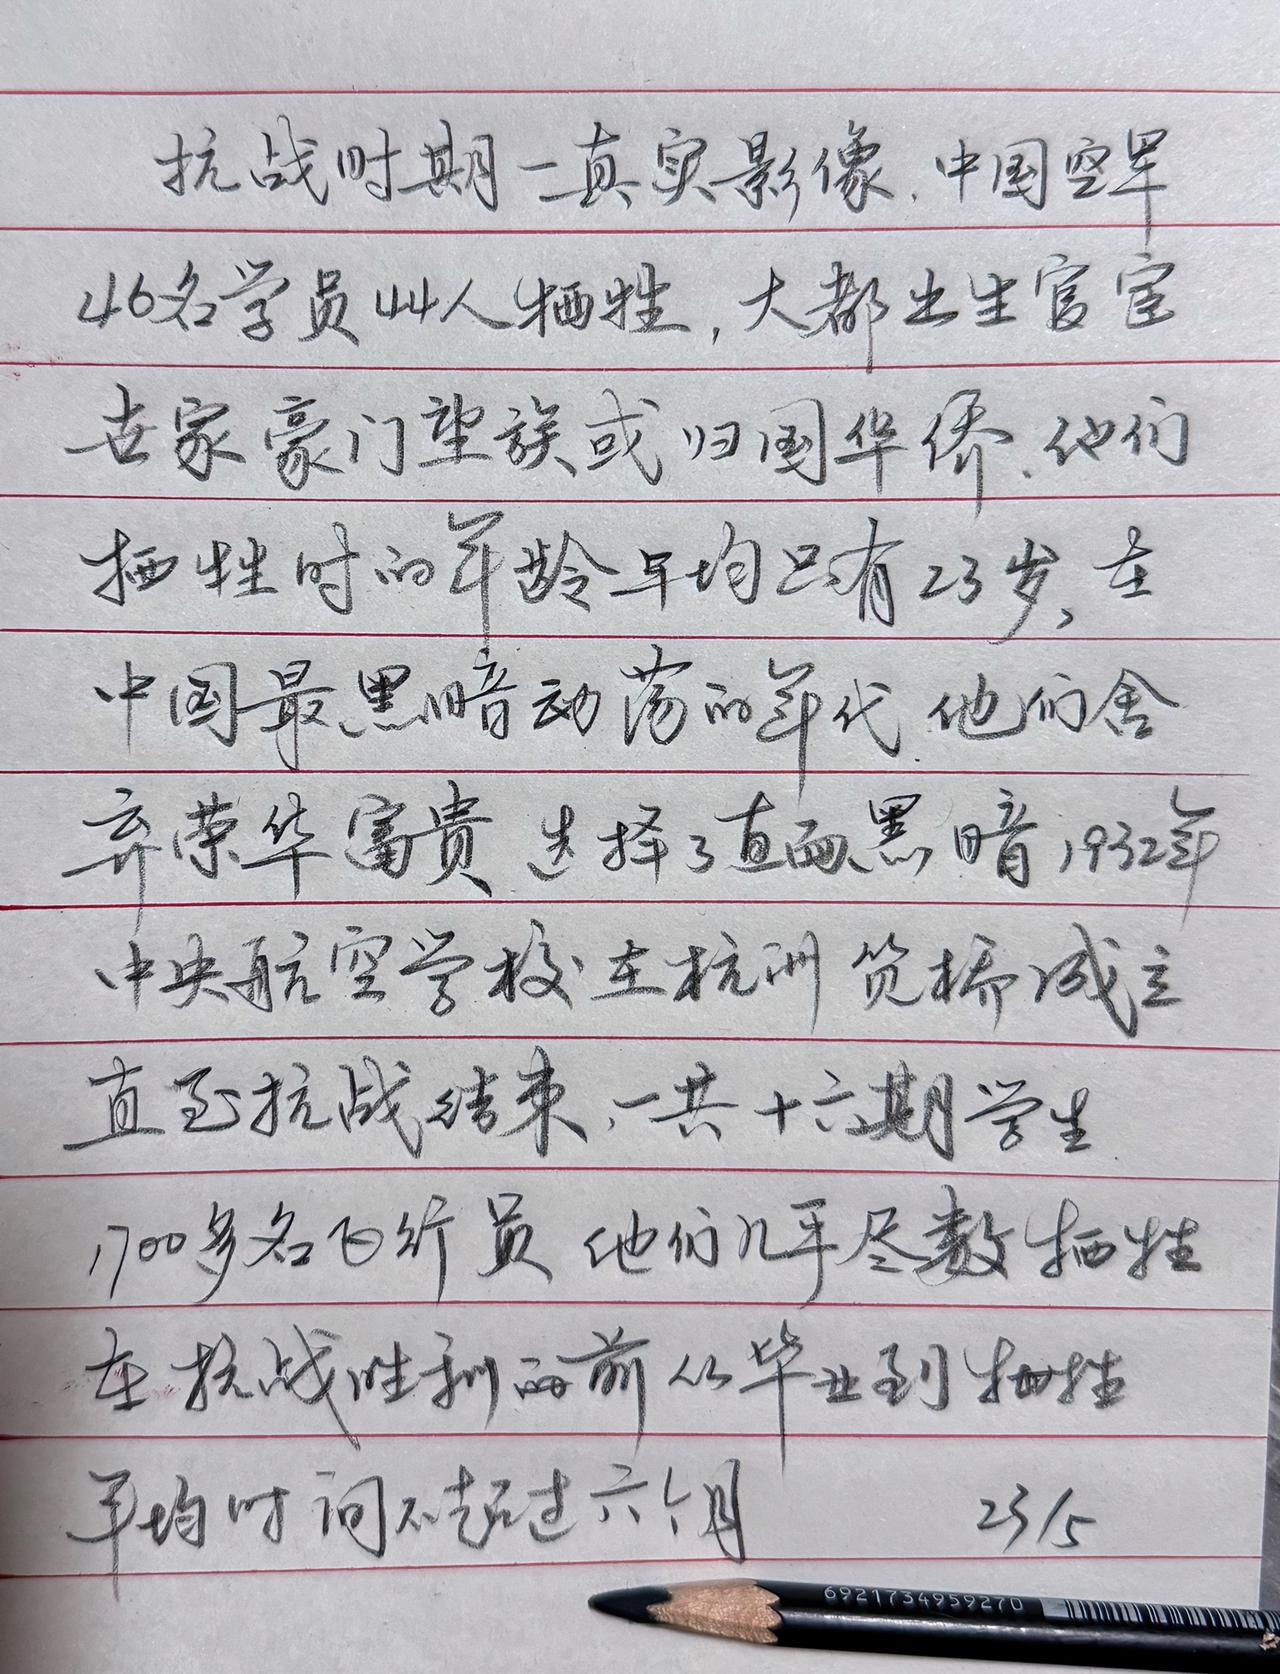 抗战时期一真实影像,中国空军
46名学员44人牺牲,大都出生官宦
世家豪门望族或归国华侨.他们
牺牲时的年龄平均只有23岁,在
中国最黑暗动荡的年代.他们舍
弃荣华富贵 选择了直面黑暗,1932年
中央航空学校在杭州笕桥成立
直至抗战结束,一共十六期学生
1700多名飞行员 他们几乎尽数牺牲
在抗战胜利的前 从毕业到牺牲
平均时间不超过六个月 23/5
6921734959270